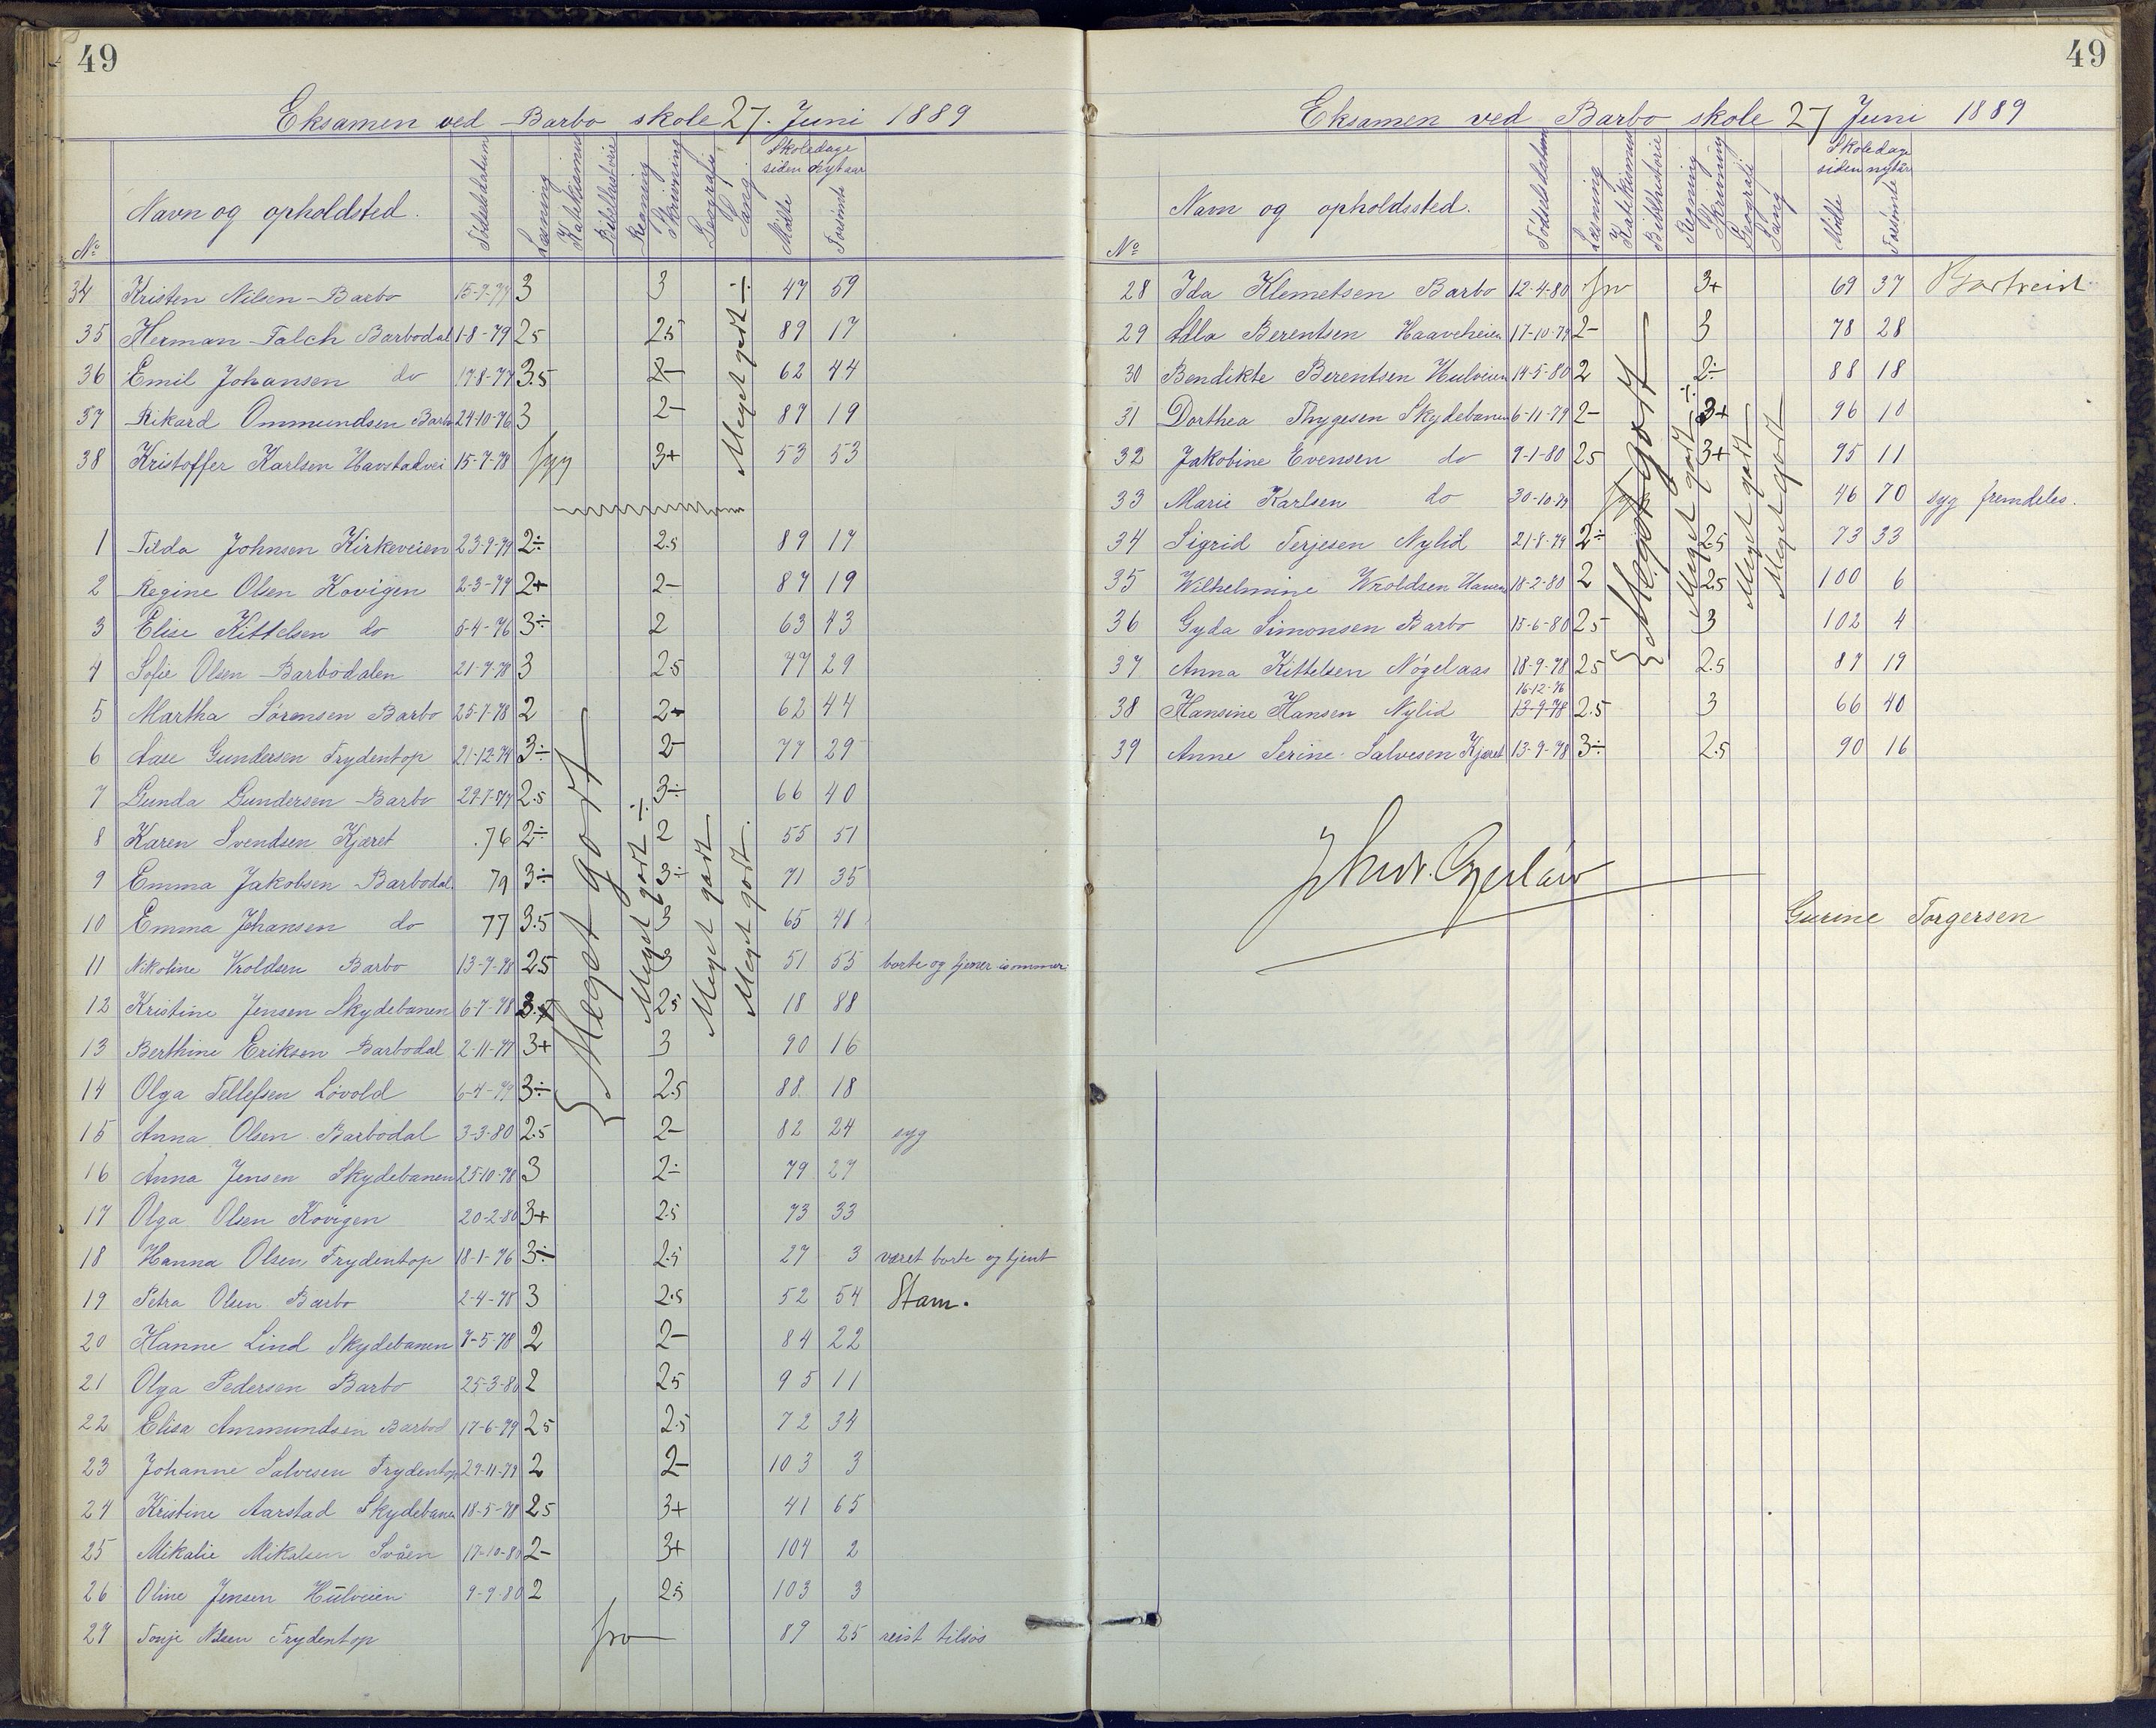 49
Eksamen ved Barbo skole 27. Juni 1889
No Navn og opholdsted. Födselsdatum Læsning Katekismus Bibelhistorie Regning Skrivning Geografi Sang Skoledage siden nytaar Mødte Forsömte
34 Kristen Nilsen Barbo 3 3 47 59
35 Herman Falch Barbodal 1-8-79 2.5 2.5 89 17
36 Emil Johansen do 17-8-77 3.5 2- 62 44
37 Rikard Ommundsen Barbo 24-10-76 3 2- 87 19
38 Kristoffer Karlsen Havstadvei 15-7-78 syg 3+ 53 53
Meget godt ÷
1 Tilda Johnsen Kirkeveien 23-9-79 2÷ 2.5 89 17
2 Regine Olsen Kovigen 2-3-79 2+ 2- 87 19
3 Elise Kittelsen do 5-4-76 3÷ 2 63 43
4 Sofie Olsen Barbodalen 21-7-78 3 2.5 77 29
5 Martha Sörensen Barbo 25-7-78 2 2+ 62 44
6 Aase Gundersen Frydentop 21-12-78 3÷ 2- 77 29
7 Gunda Gundersen Barbo 2.5 3÷ 66 40
8 Karen Svendsen Kjæret .76 2÷ 2 55 51
9 Emma Jakobsen Barbodal. 79 3÷ 3÷ 71 35
10 Emma Johansen do 77 3.5 3 65 41
11 Nikoline Vroldsen Barbo 13-7-78 2.5 3 51 55 borte og tjener i sommer
12 Kristine Jensen Skydebanen 6-7-78 3.5 2.5 18 88
13 Berthine Eriksen Barbodal 2-11-77 3+ 3 90 16
14 Olga Tellefsen Lövold 6-4-79 3÷ 2.5 88 18
15 Anna Olsen Barbodal 3-3-80 2.5 2- 82 24 syg
16 Anna Jensen Skydebanen 25-10-78 3 2÷ 79 27
17 Olga Olsen Kovigen 20-2-80 3+ 2.5 73 33
18 Hanna Olsen Frydentop 18-1-76 3÷ 2.5 27 3 været borte og tjent
19 Petra Olsen Barbo 2-4-78 3 2.5 52 54 Stam.
20 Hanne Lind Skydebanen 7-5-78 2 2- 84 22
21 Olga Pedersen Barbo 25-3-80 2 2.5 95 11
22 Elisa Ammundsen Barbod 17-6-79 2.5 2.5 72 34
23 Johanne Salvesen Frydentop 29-11-79 2 2- 103 3
24 Kristine Aarstad Skydebanen 18-5-78 2.5 3+ 41 65
25 Mikalie Mikalsen Svåen 17-10-80 2- 3+ 104 2
26 Oline Jensen Hulveien 9-9-80 2 2.5 103 3
27 Tonje Nilsen Frydentop frv 89 25 reist tilsøs
Meget godt
Meget godt ÷
Meget godt
Meget godt.
49
Eksamen ved Barbo skole 27 Juni 1889
No Navn og opholdssted. Födselsdatum Læsning Katekismus Bibelhistorie Regning Skrivning Geografi Sang Skoledage siden nytår Mödte Forsömte
28 Ida Klemetsen Barbo 12-4-80 frv 3+ 69 37 Bortreist
29 Berentsen Haaveheien 17-10-79 2- 3 78 28
30 Bendikte Berentsen Hulveien 14-5-80 2 2÷ 88 18
31 Dorthea Thygesen Skydebanen 6-11-79 2- 3+ 96 10
32 Jakobine Evensen do 9-1-80 2.5 3+ 95 11
33 Marie Karlsen do 30-10-79 syg 46 70 syg fremdeles.
34 Sigrid Terjesen Nylid 21-8-79 2÷ 2.5 73 33
35 Wilhelmine Vroldsen 18-2-80 2 2.5 100 6
36 Gyda Simonsen Barbo 15-6-80 2.5 3 102 4
37 Anna Kittelsen Nögelaas 18-9-78 2.5 2.5 87 19
38 Hansine Hansen Nylid 16-12-76 13-9-78 2.5 3 66 40
39 Anne Serine Salvesen Kjæret 13-9-78 3÷ 2.5 90 16
Meget godt
Meget godt ÷
Meget godt
Meget godt
Gurine Torgersen